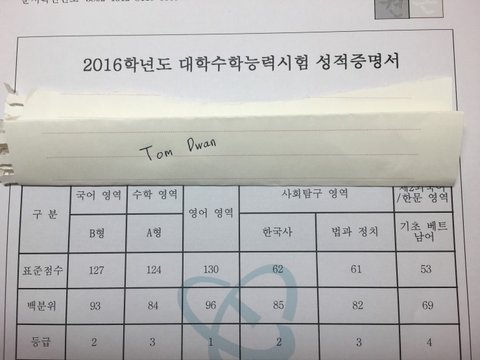 2016학년도 대학수학능력시험 성적증명서
Tom Dwan
구 분 국어 영역 수학 영역 영어 영역 사회탐구 영역 제2외국어/한문 영역
B형 A형 한국사 법과 정치 기초 베트남어
표준점수 127 124 130 62 61 53
백분위 93 84 96 85 82 69
등급 2 3 1 2 3 4